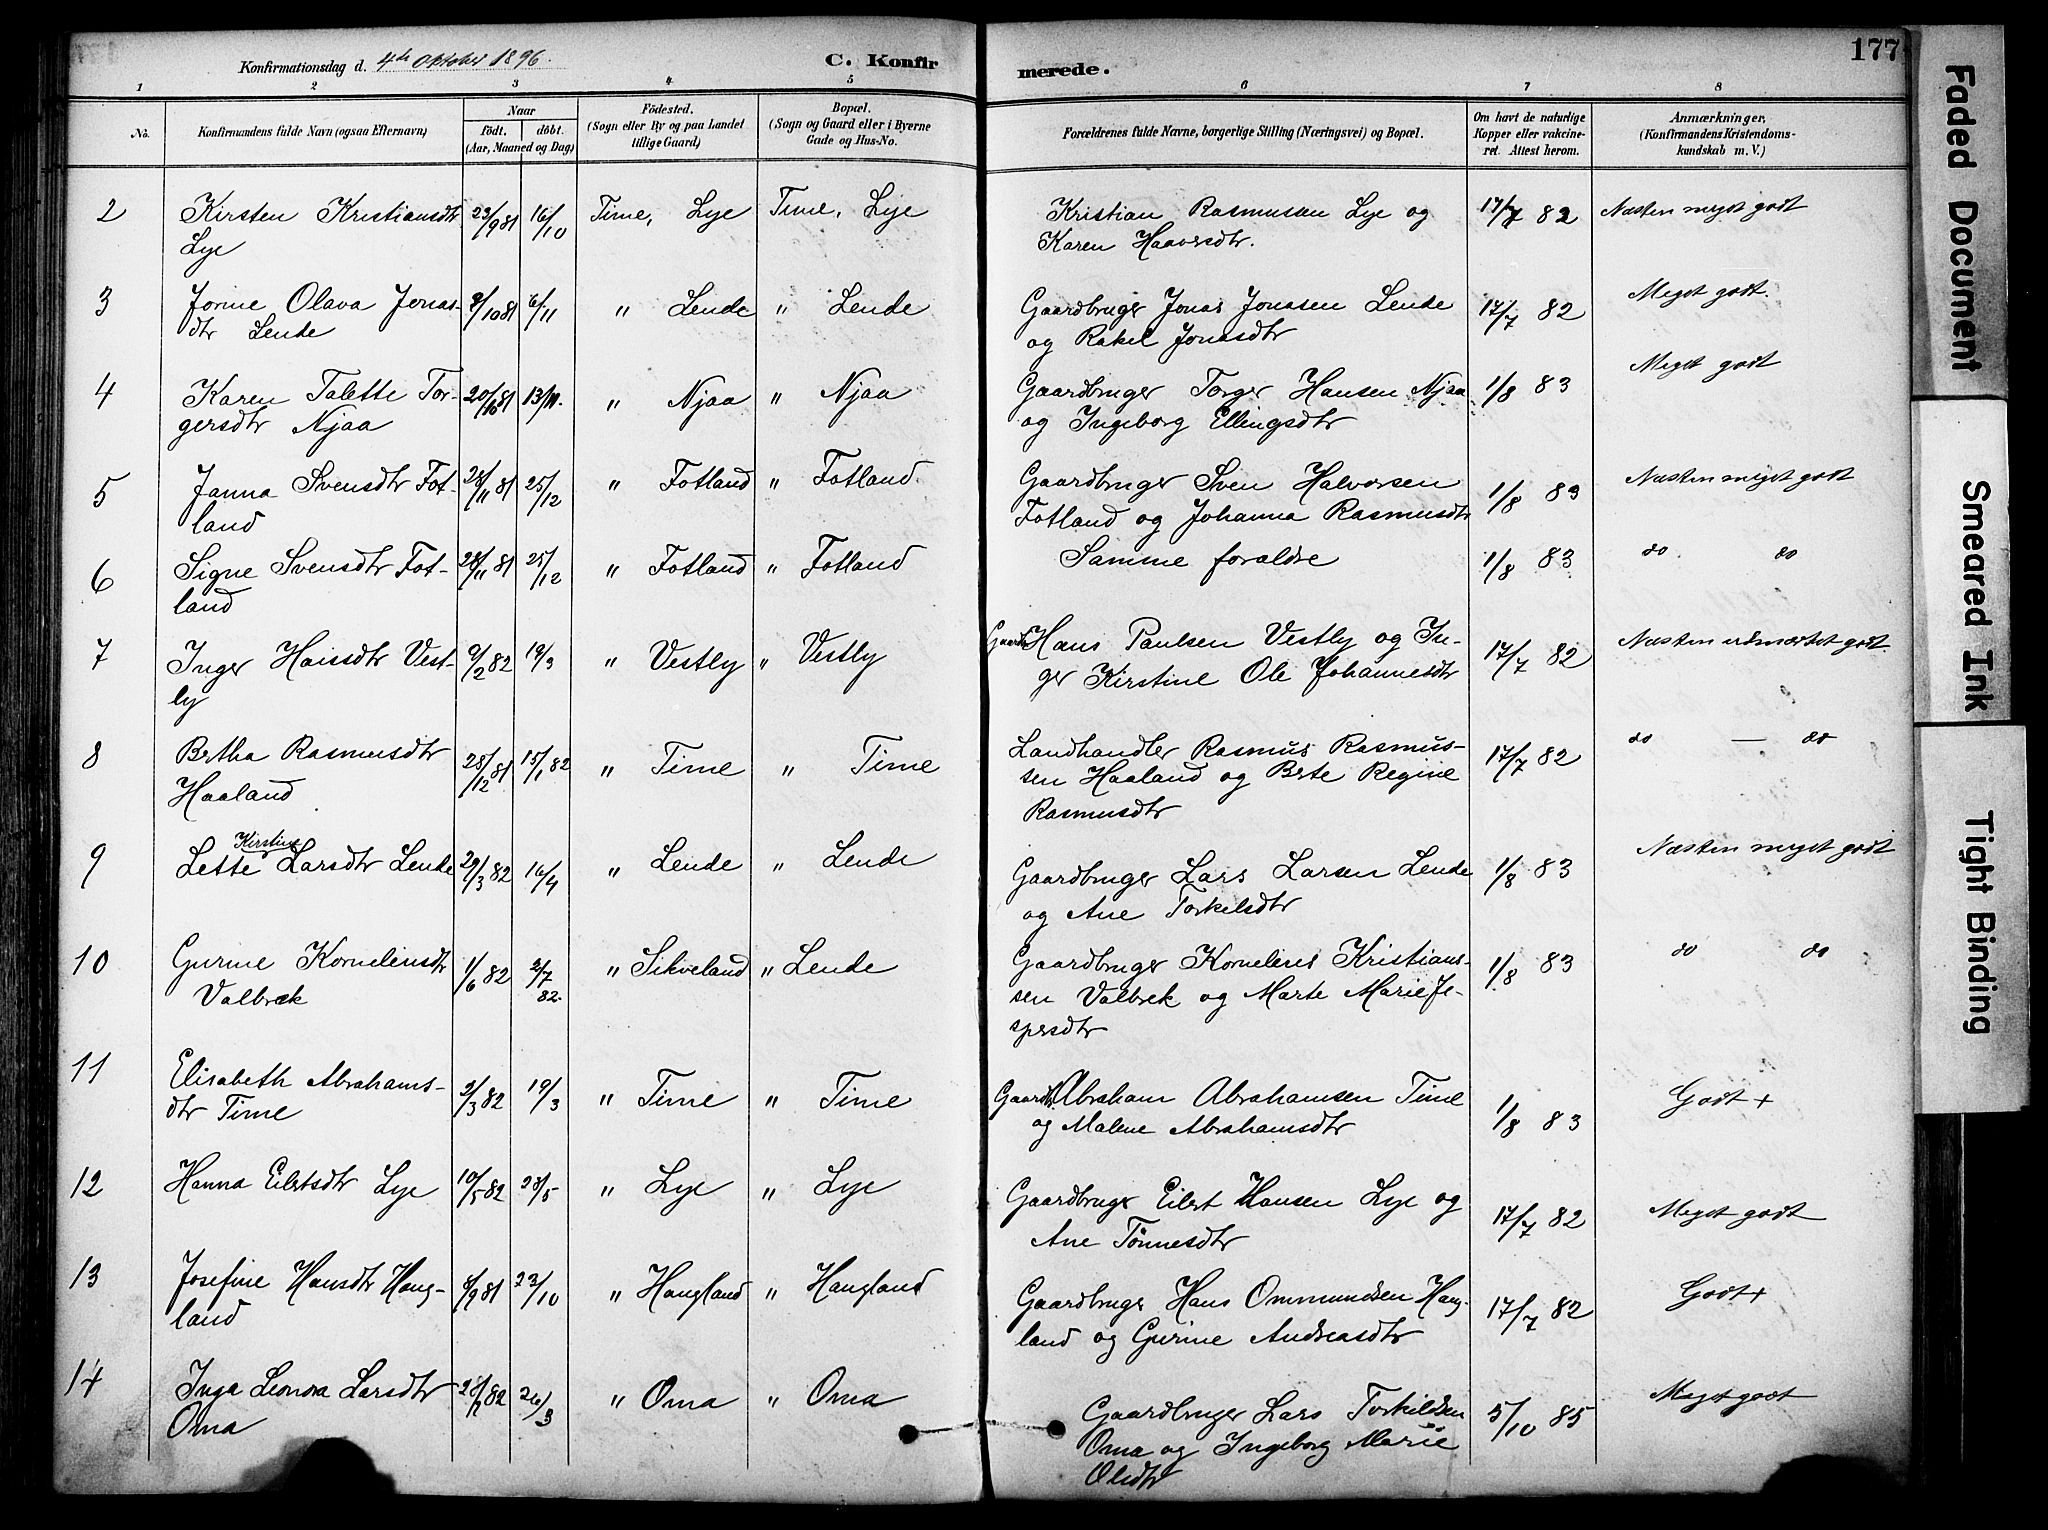 177
Konfirmationsdag d. 4de Oktober 1896.
C. Konfir
merede.
1 2 3 4 5 6 7 8
No.
Konfirmandens fulde Navn (ogsaa Efternavn)
Naar
födt. döbt.
(Aar, Maaned og Dag)
Födested.
(Sogn eller By og paa Landet
tillige Gaard)
Bopæl.
(Sogn og Gaard eller i Byerne
Gade og Hus-No.
Forældrenes fulde Navne, borgerlige Stilling (Næringsvei) og Bopæl.
Om havt de naturlige
Kopper eller vakcine-
ret. Attest herom.
Anmærkninger,
(Konfirmandens Kristendoms-
kundskab m. V.)
2 Kirsten Kristiansdtr 23/9 81 16/10 Time, Lye Time, Lye Kristian Rasmussen Lye og 17/7 82 Næsten meget godt
Lye Karen Haaversdtr.
3 Jorine Olava Jonas- 9/10 81 6/11 " Lende " Lende Gaardbruger Jonas Jonasen Lende 17/7 82 Meget godt.
dtr Lende og Rakel Jonasdtr
4 Karen Talette Tor- 20/10 81 13/11. " Njaa " Njaa Gaardbruger Torger Hansen Njaa 1/8 83 Meget godt
gersdtr Njaa og Ingeborg Ellingsdtr
5 Janna Svensdtr Fot- 28/11 81 25/12 " Fotland " Fotland. Gaardbruger Sven Halvorsen 1/8 83 Næsten meget godt
land Fotland og Johanna Rasmusdtr
6 Signe Svensdtr Fot- 28/11 81 25/12 " Fotland " Fotland Samme foraldre 1/8 83 do. do
land
7 Inger Hansdtr Vest- 9/2 82 19/3 " Vestly " Vestly Gaardb Hans Paulsen Vestly og In- 17/7 82 Næsten udmærket godt
ly ger Kirstine Ole Johannesdtr
8 Bertha Rasmusdtr 28/12 81 15/1 82 " Time " Time Landhandler Rasmus Rasmus- 17/7 82 do — do
Haaland sen Haaland og Berte Regine
Rasmusdtr
Kirstine
9 Lette Larsdtr Lende 29/3 82 16/4 " Lende " Lende Gaardbruger Lars Larsen Lende 1/8 83 Næsten meget godt
og Ane Torkelsdtr
10 Gurine Korneliusdtr 1/6 82 2/7 82. " Sikveland " Lende Gaardbruger Kornelius Kristian- 1/8 83 do do
Valbræk sen Valbrek og Marte Marie Je-
spersdtr
11 Elisabeth Abrahams- 2/3 82 19/3 " Time " Time Gaardb. Abraham Abrahamsen Time 1/8 83 Godt +
dtr Time og Malene Abrahamsdtr
12 Hanna Eilertsdtr Lye 10/5 82 28/5 " Lye " Lye Gaardbruger Eilert Hansen Lye og 17/7 82 Meget godt
Ane Tönnesdtr
13 Josefine Hansdtr Haug- 8/9 81 23/10 " Haugland " Haugland Gaardbruger Hans Ommundsen Haug- 17/7 82 Godt +
land land og Gurine Andreasdtr
14 Inga Leonora Larsdtr 82 26/3 " Oma " Oma Gaardbruger Lars Torkildsen 5/10 85 Meget godt
Oma Oma og Ingeborg Marie
Olsdtr
Faded Document
Smeared Ink
Tight Binding